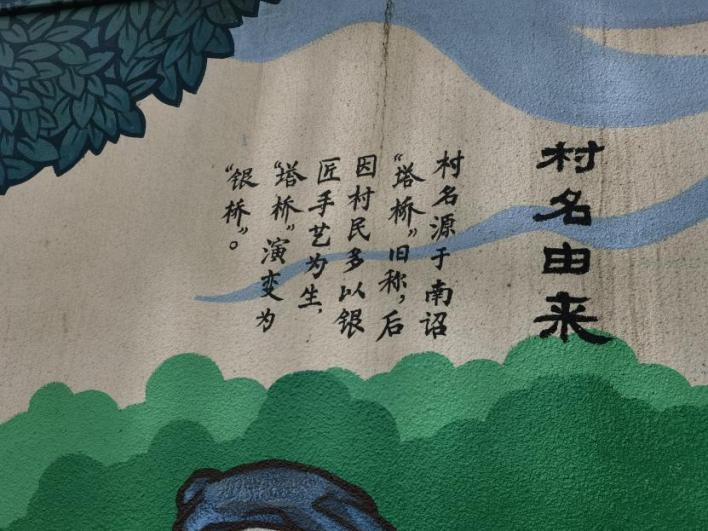 村名由来
村名源于南诏
“塔桥”旧称，后
因村民多以银
匠手艺为生，
“塔桥”演变为
“银桥”。